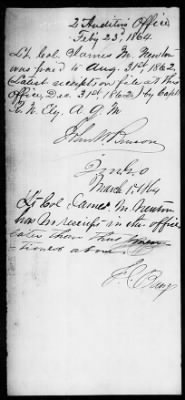 2 Auditors Office
Feby 23d, 1864.
Lt. Col James M. Newton
was paid to Aug. 31st 1862.
Latest receipt on file at this
Office, Dec. 31st, 1862, by Capt
R. N. Ely, A. Q. M
John W.
March 1, 1864
Lt Col James M Newton
has no receipts in the office
later than those
tioned above.